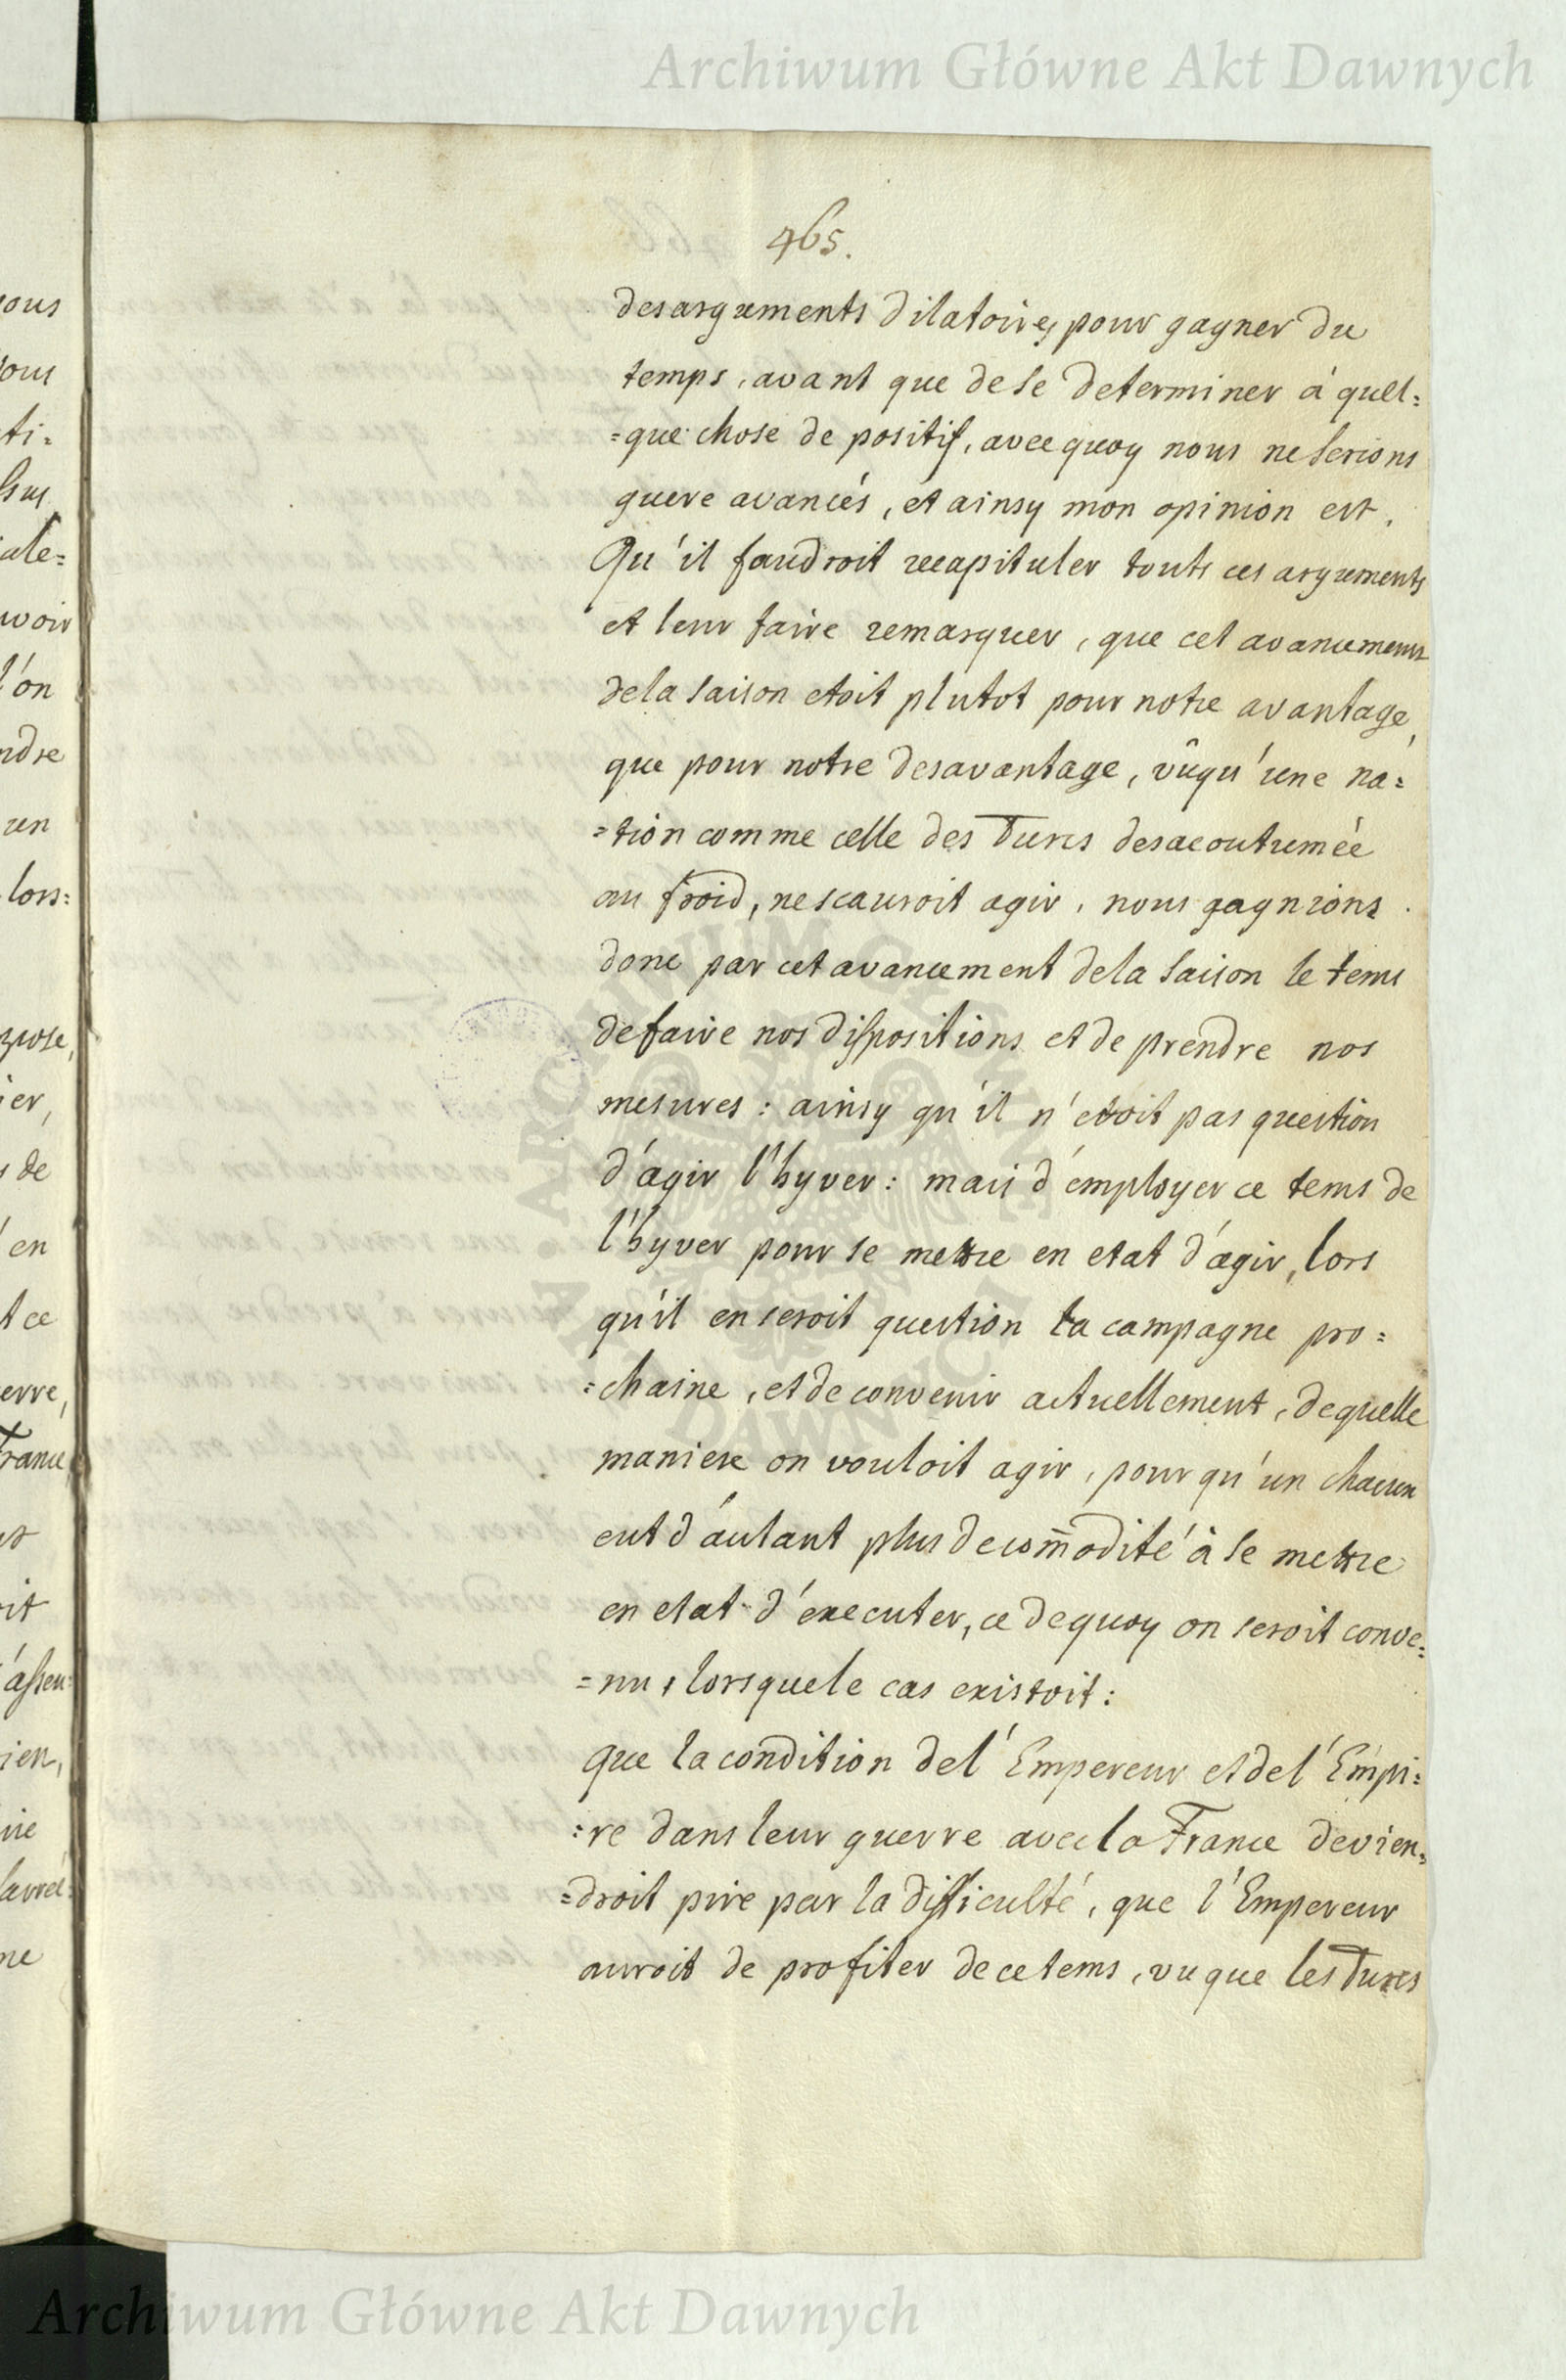 Archiwum Główne Akt Dawnych
465.
des arguments dilatoires pour gagner du
temps, avant que de se determiner à quel=
=que chose de positif, avec quoy nous ne serions
guere avancés, et ainsy mon opinion est,
Qu'il faudroit recapituler touts ces arguments
et leur faire remarquer, que cet avancement
de la saison etoit plutot pour notre avantage,
que pour notre desavantage, vûqu'une na=
=tion comme celle des Turcs desacoutumée
au froid, ne scauroit agir, nous gagnions
donc par cet avancement de la saison le tems
de faire nos dispositions et de prendre nos
mesures : ainsy qu'il n'etoit pas question
d'agir l'hyver : mais d'employer ce tems de
l'hyver pour se mettre en etat d'agir, lors
qu'il en seroit question la campagne pro=
=chaine, et de convenir actuellement, de quelle
maniere on vouloit agir, pour qu'un chacun
eut d'autant plus de com̄odité à se mettre
en etat d'executer, ce de quoy on seroit conve=
=nu, lorsque le cas existoit :
que la condition de l'Empereur et de l'Empi=
=re dans leur guerre avec la France devien=
=droit pire par la difficulté, que l'Empereur
auroit de profiter de ce tems, vu que les Turcs
ous
ti=
ale=
uvoir
l'on
ndre
un
lors=
ier,
de
en
ce
erre,
France
it
ien,
ne
ARCHIWUM GŁÓWNE AKT DAWNYCH
Archiwum Główne Akt Dawnych